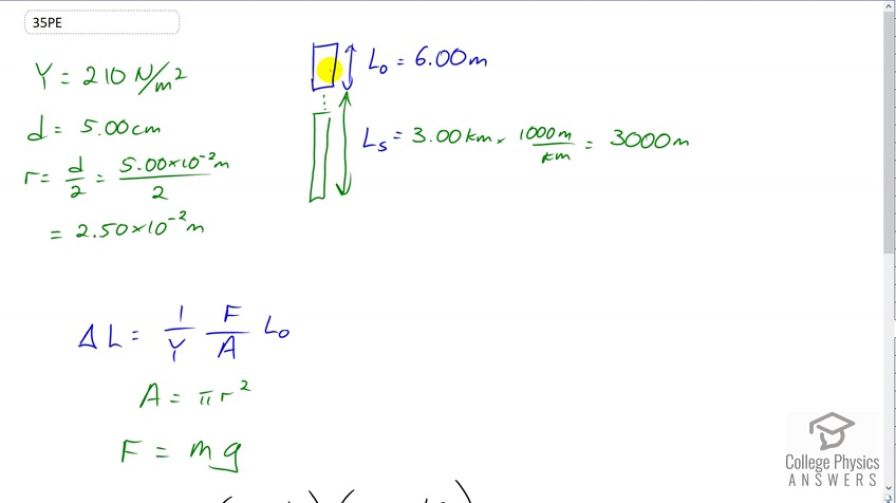 35PE
Y = 210 N/m²
d = 5.00cm
r = d/2 = 5.00×10⁻²m/2
= 2.50×10⁻²m
L₀ = 6.00m
Lₛ = 3.00km × 1000m/km = 3000m
ΔL = 1/Y F/A L₀
A = πr²
F = mg
College Physics
ANSWERS